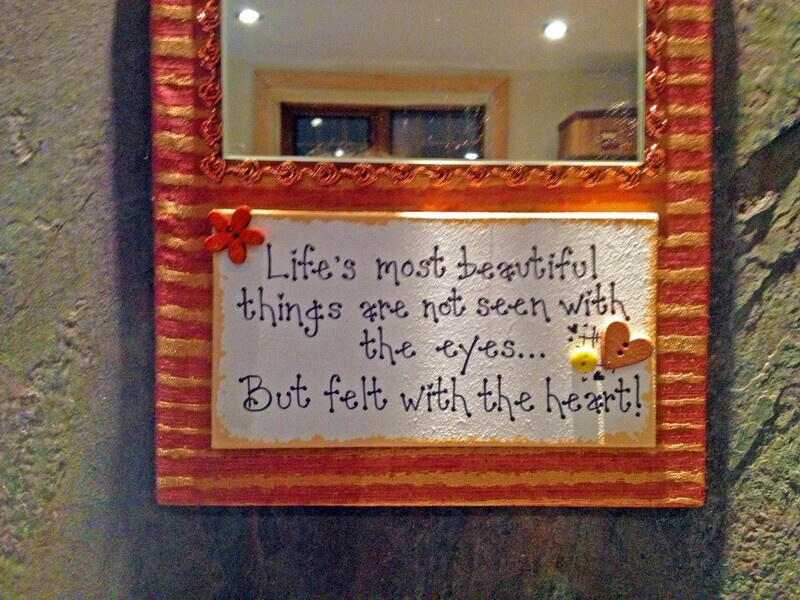 Life's most beautiful
things are not seen with
the eyes...
But felt with the heart!